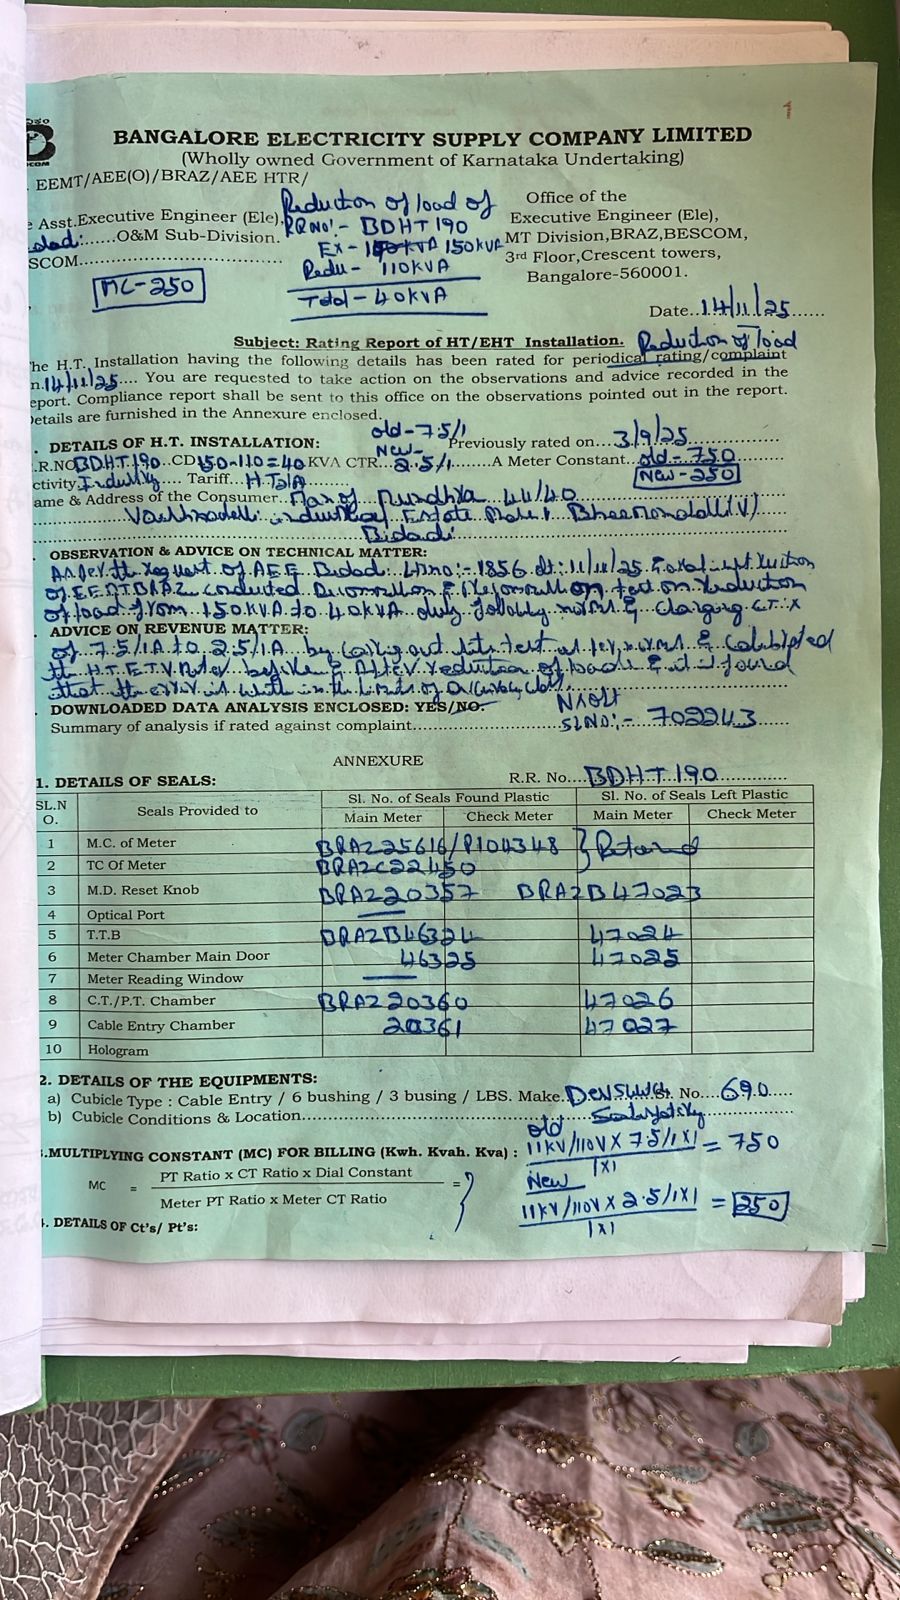 BANGALORE ELECTRICITY SUPPLY COMPANY LIMITED
(Wholly owned Government of Karnataka Undertaking)
EEMT/AEE(O)/BRAZ/AEE HTR/
Asst.Executive Engineer (Ele),
O&M Sub-Division.
SCOM
MC-250
Reduction of load of
RRNo:- BDHT 190
Ex- 150KVA
Redu- 110KVA
Total- 40KVA
Office of the
Executive Engineer (Ele),
MT Division,BRAZ,BESCOM,
3rd Floor,Crescent towers,
Bangalore-560001.
Date..14/11/25
Subject: Rating Report of HT/EHT Installation. Reduction of load
he H.T. Installation having the following details has been rated for periodical rating/complaint
n.14/11/25.... You are requested to take action on the observations and advice recorded in the
eport. Compliance report shall be sent to this office on the observations pointed out in the report.
etails are furnished in the Annexure enclosed.
DETAILS OF H.T. INSTALLATION: old-7.5/1 Previously rated on...3/9/25
.R.NO BDHT 190..CD 150-110=40 KVA CTR...New- 2.5/1.......A Meter Constant...old-750
New-250
ctivity Industry.... Tariff...
ame & Address of the Consumer
44/40
Estate
Bidadi
OBSERVATION & ADVICE ON TECHNICAL MATTER:
As per the request of AEE Bidadi 1856 dt:11/11/25
of conducted
of load from 150KVA to 40KVA duly & changing
ADVICE ON REVENUE MATTER:
of 7.5/1A to 2.5/1A by out test as per norms & calibrated
the H.T.E.T.V Meter before & After reduction of load & it is found
that the error is within the limits of
DOWNLOADED DATA ANALYSIS ENCLOSED: YES/NO.
Summary of analysis if rated against complaint
SLNO:- 702243
ANNEXURE
1. DETAILS OF SEALS: R.R. No....BDHT 190
SL.N O. Seals Provided to Sl. No. of Seals Found Plastic Sl. No. of Seals Left Plastic
Main Meter Check Meter Main Meter Check Meter
1 M.C. of Meter BRAZ25616/P104348
2 TC Of Meter BRAZC22450
3 M.D. Reset Knob BRAZ20357 BRAZB47023
4 Optical Port
5 T.T.B BRAZB46324 47024
6 Meter Chamber Main Door 46325 47025
7 Meter Reading Window
8 C.T./P.T. Chamber BRAZ20360 47026
9 Cable Entry Chamber 20361 47027
10 Hologram
2. DETAILS OF THE EQUIPMENTS:
a) Cubicle Type : Cable Entry / 6 bushing / 3 busing / LBS. Make. No....690
b) Cubicle Conditions & Location
old
.MULTIPLYING CONSTANT (MC) FOR BILLING (Kwh. Kvah. Kva) : 11KV/110V X 7.5/1X1 = 750
1X1
MC = PT Ratio x CT Ratio x Dial Constant =
Meter PT Ratio x Meter CT Ratio
New
11KV/110V X 2.5/1X1 = 250
1X1
. DETAILS OF Ct's/ Pt's: